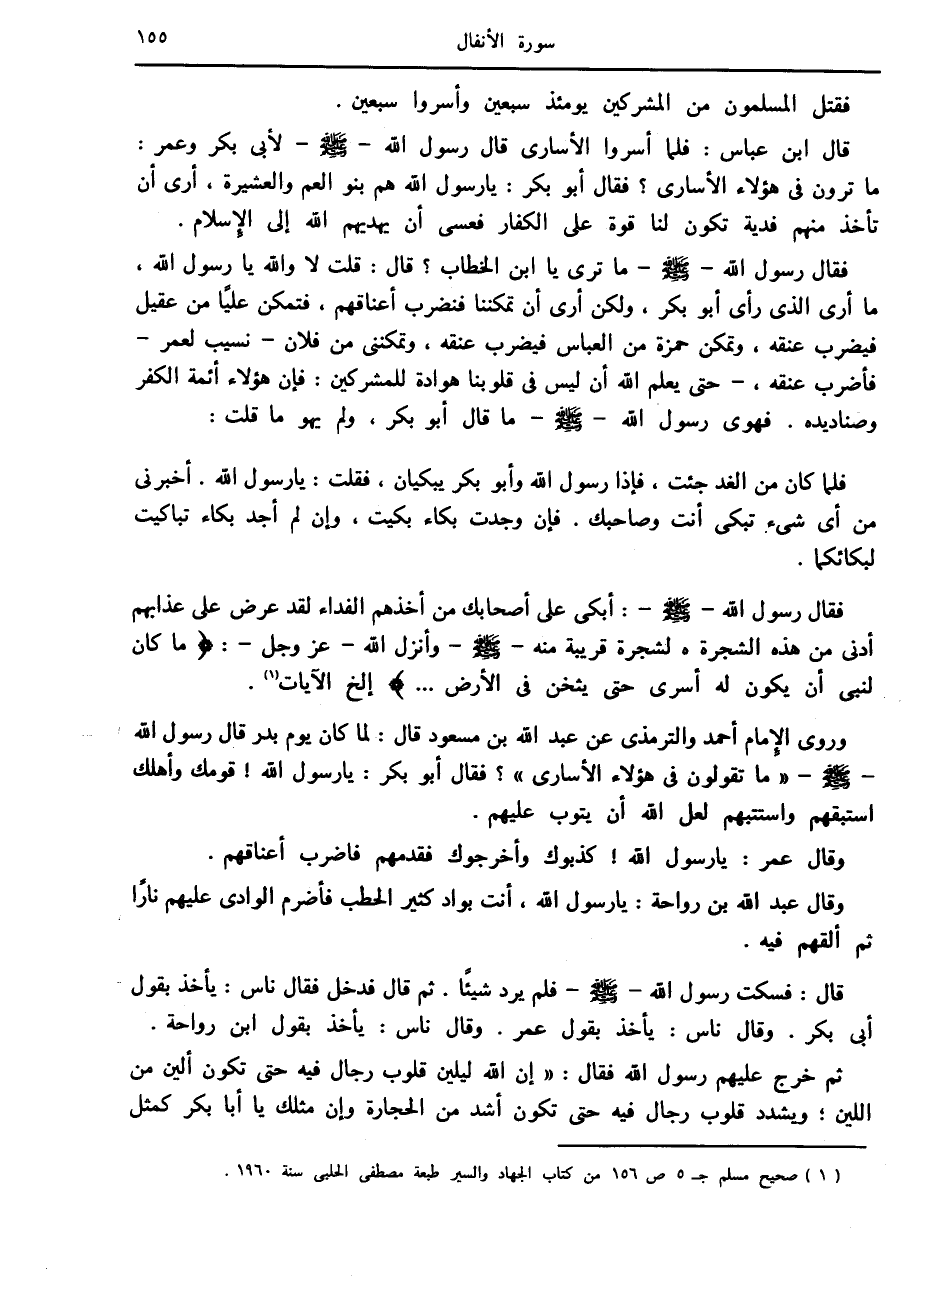 سورة الأنفال ١٥٥
فقتل المسلمون من المشركين يومئذ سبعين وأسروا سبعين .
قال ابن عباس : فلما أسروا الأسارى قال رسول الله – ﷺ – لأبى بكر وعمر :
ما ترون فى هؤلاء الأسارى ؟ فقال أبو بكر : يارسول الله هم بنو العم والعشيرة ، أرى أن
تأخذ منهم فدية تكون لنا قوة على الكفار فعسى أن يهديهم الله إلى الإسلام .
فقال رسول الله – ﷺ – ما ترى يا ابن الخطاب ؟ قال : قلت لا والله يا رسول الله ،
ما أرى الذى رأى أبو بكر ، ولكن أرى أن تمكننا فنضرب أعناقهم ، فتمكن عليًا من عقيل
فيضرب عنقه ، وتمكن حمزة من العباس فيضرب عنقه ، وتمكنى من فلان – نسيب لعمر –
فأضرب عنقه ، – حتى يعلم الله أن ليس فى قلوبنا هوادة للمشركين : فإن هؤلاء أئمة الكفر
وصناديده . فهوى رسول الله – ﷺ – ما قال أبو بكر ، ولم يهو ما قلت :
فلما كان من الغد جئت ، فإذا رسول الله وأبو بكر يبكيان ، فقلت : يارسول الله . أخبرنى
من أى شىء تبكى أنت وصاحبك . فإن وجدت بكاء بكيت ، وإن لم أجد بكاء تباكيت
لبكائكما .
فقال رسول الله – ﷺ – : أبكى على أصحابك من أخذهم الفداء لقد عرض على عذابهم
أدنى من هذه الشجرة ه لشجرة قريبة منه – ﷺ – وأنزل الله – عز وجل – : ﴿ ما كان
لنبى أن يكون له أسرى حتى يثخن فى الأرض ... ﴾ إلخ الآيات(١) .
وروى الإمام أحمد والترمذى عن عبد الله بن مسعود قال : لما كان يوم بدر قال رسول الله
– ﷺ – « ما تقولون فى هؤلاء الأسارى » ؟ فقال أبو بكر : يارسول الله ! قومك وأهلك
استبقهم واستتبهم لعل الله أن يتوب عليهم .
وقال عمر : يارسول الله ! كذبوك وأخرجوك فقدمهم فاضرب أعناقهم .
وقال عبد الله بن رواحة : يارسول الله ، أنت بواد كثير الحطب فأضرم الوادى عليهم نارًا
ثم ألقهم فيه .
قال : فسكت رسول الله – ﷺ – فلم يرد شيئًا . ثم قال فدخل فقال ناس : يأخذ بقول
أبى بكر . وقال ناس : يأخذ بقول عمر . وقال ناس : يأخذ بقول ابن رواحة .
ثم خرج عليهم رسول الله فقال : « إن الله ليلين قلوب رجال فيه حتى تكون ألين من
اللين ؛ ويشدد قلوب رجال فيه حتى تكون أشد من الحجارة وإن مثلك يا أبا بكر كمثل
( ١ ) صحيح مسلم جـ ٥ ص ١٥٦ من كتاب الجهاد والسير طبعة مصطفى الحلبى سنة ١٩٦٠ .